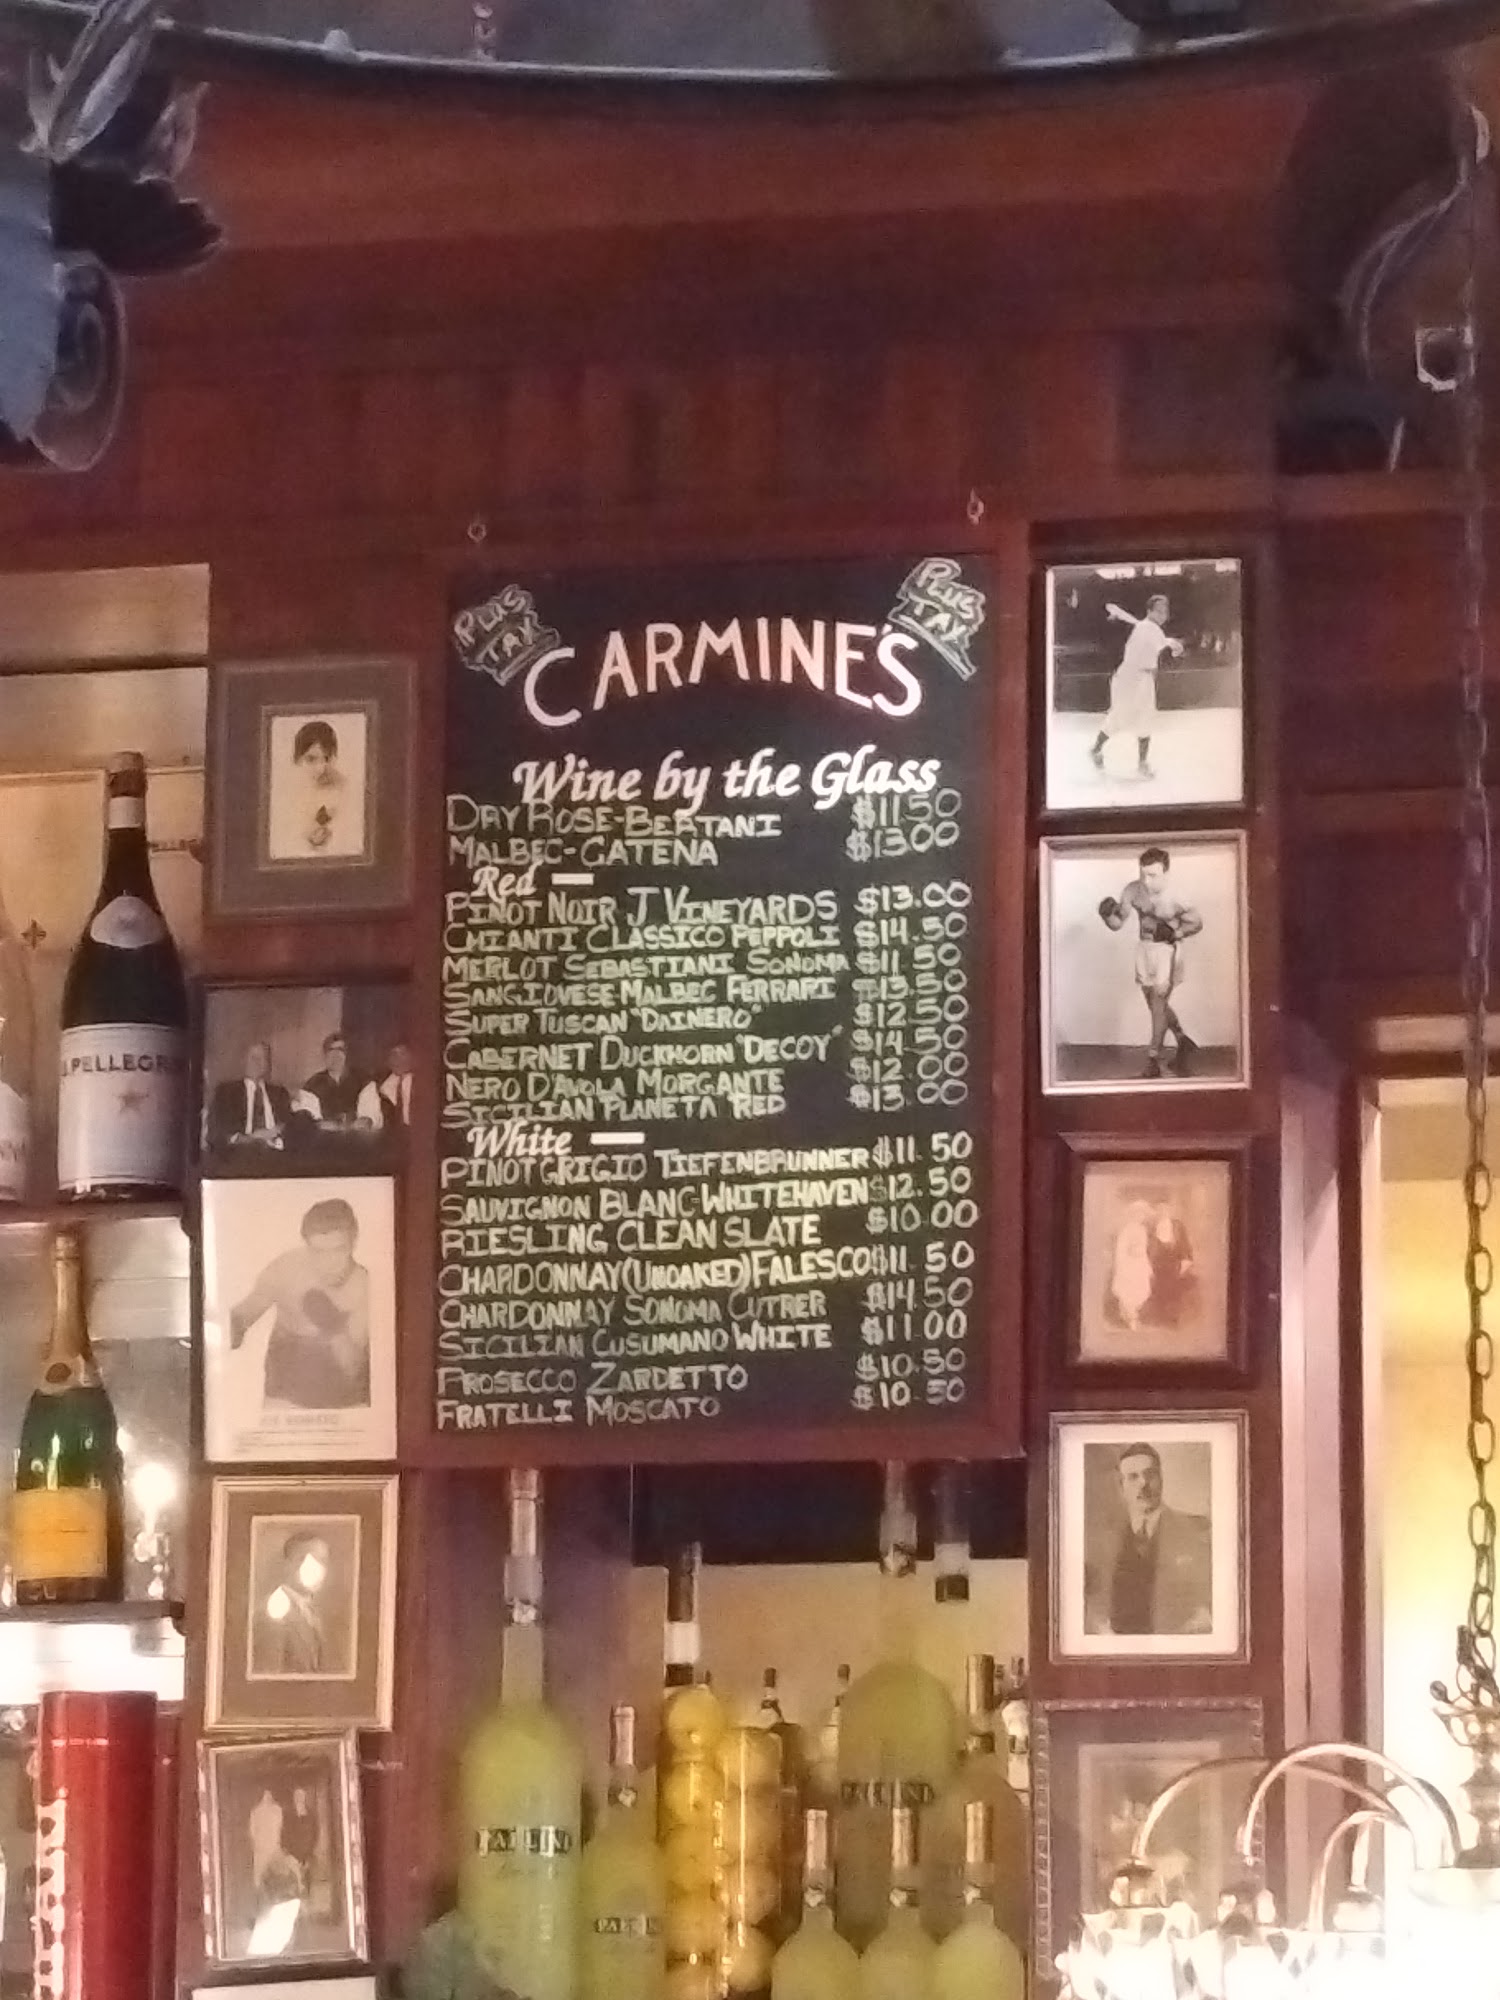 PLUS
TAX
PLUS
TAX
CARMINE'S
Wine by the Glass
DRY ROSE-BERTANI $11.50
MALBEC-CATENA $13.00
Red —
PINOT NOIR J VINEYARDS $13.00
CHIANTI CLASSICO PEPPOLI $14.50
MERLOT SEBASTIANI SONOMA $11.50
SANGIOVESE MALBEC FERRARI $13.50
SUPER TUSCAN "DAINERO" $12.50
CABERNET DUCKHORN "DECOY" $14.50
NERO D'AVOLA MORGANTE $12.00
SICILIAN PLANETA RED $13.00
White —
PINOT GRIGIO TIEFENBRUNNER $11.50
SAUVIGNON BLANC-WHITEHAVEN $12.50
RIESLING CLEAN SLATE $10.00
CHARDONNAY (UNOAKED) FALESCO $11.50
CHARDONNAY SONOMA CUTRER $14.50
SICILIAN CUSUMANO WHITE $11.00
PROSECCO ZARDETTO $10.50
FRATELLI MOSCATO $10.50
PELLEGRI